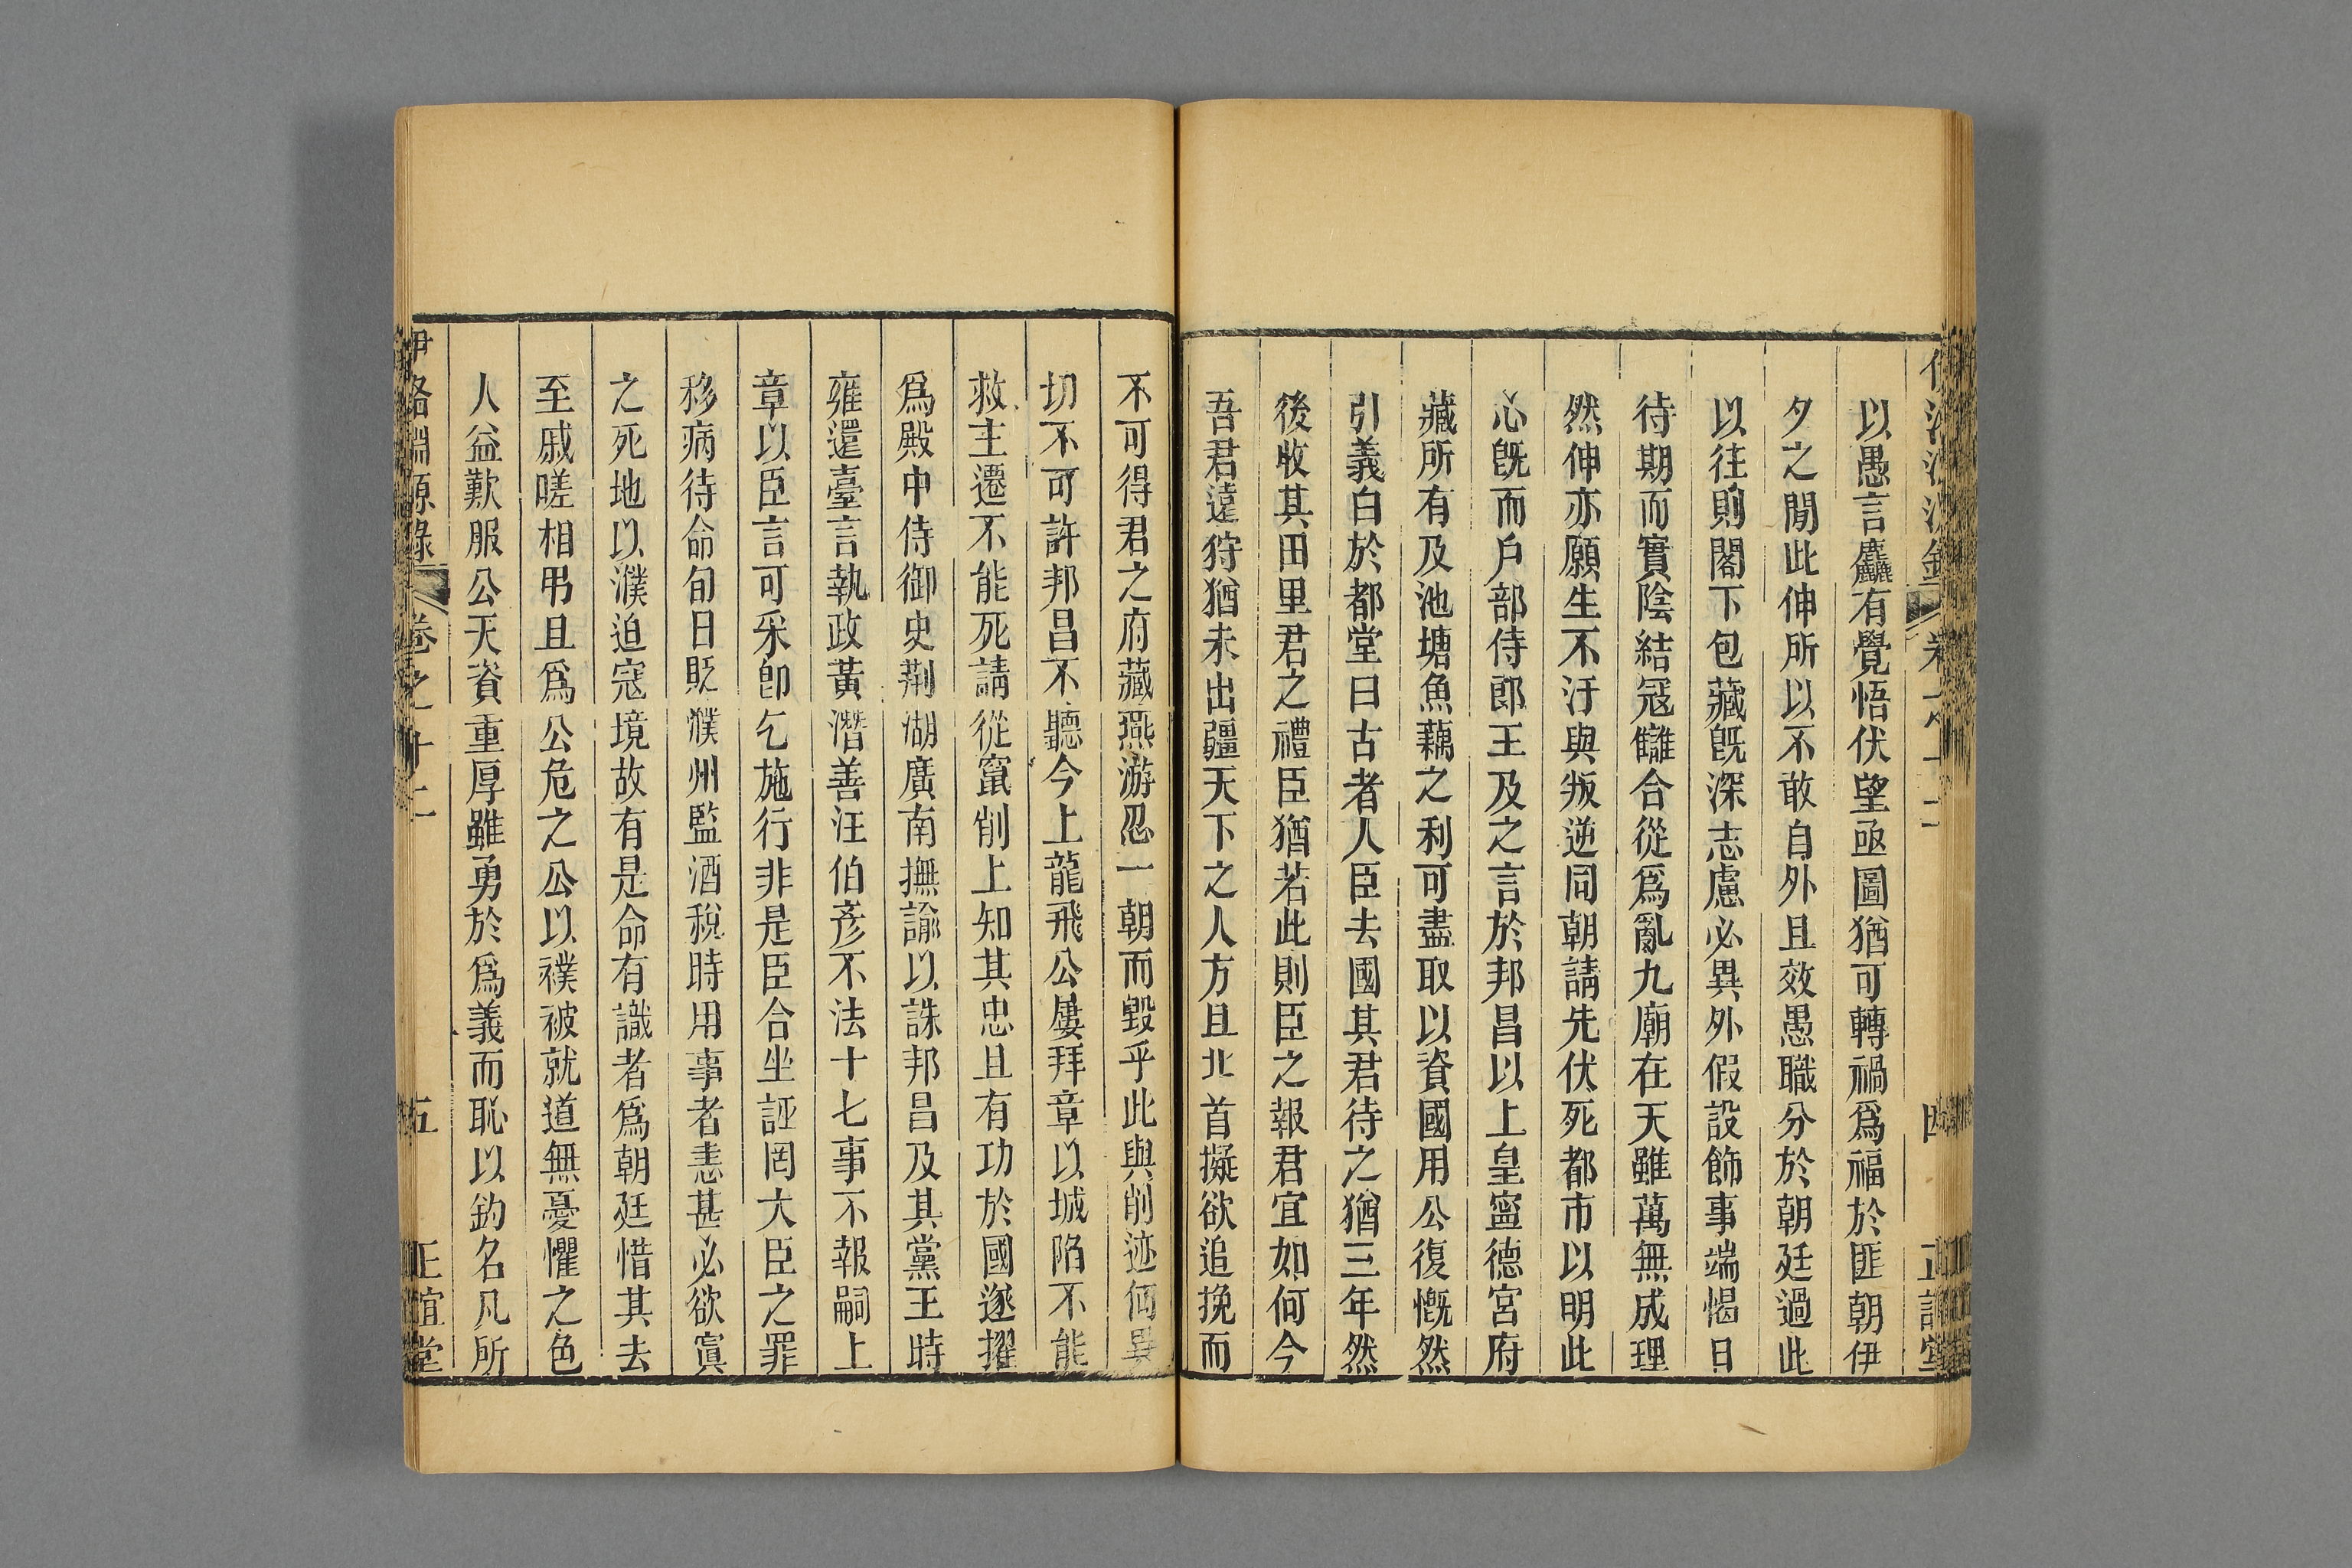 以愚言麤有覺悟伏望亟圖猶可轉禍爲福於匪朝伊
夕之閒此伸所以不敢自外且效愚職分於朝廷過此
以往則閣下包藏旣深志慮必異外假設飾事端愒日
待期而實陰結冦讎合從爲亂九廟在天雖萬無成理
然伸亦願生不汙與叛逆同朝請先伏死都市以明此
心旣而戶部侍郎王及之言於邦昌以上皇寧德宮府
藏所有及池塘魚藕之利可盡取以資國用公復慨然
引義白於都堂曰古者人臣去國其君待之猶三年然
後收其田里君之禮臣猶若此則臣之報君宜如何今
吾君遠狩猶未出疆天下之人方且北首擬欲追挽而
不可得君之府藏燕游忍一朝而毀乎此與削迹何異
切不可許邦昌不聽今上龍飛公屢拜章以城陷不能
救主遷不能死請從竄削上知其忠且有功於國遂擢
爲殿中侍御史荆湖廣南撫諭以誅邦昌及其黨王時
雍還臺言執政黃潛善汪伯彥不法十七事不報嗣上
章以臣言可采卽乞施行非是臣合坐誣罔大臣之罪
移病待命旬日貶濮州監酒稅時用事者恚甚必欲寘
之死地以濮迫寇境故有是命有識者爲朝廷惜其去
至戚嗟相弔且爲公危之公以襆被就道無憂懼之色
人益歎服公天資重厚雖勇於爲義而恥以釣名凡所
伊洛淵源錄
卷之十二
五
正誼堂